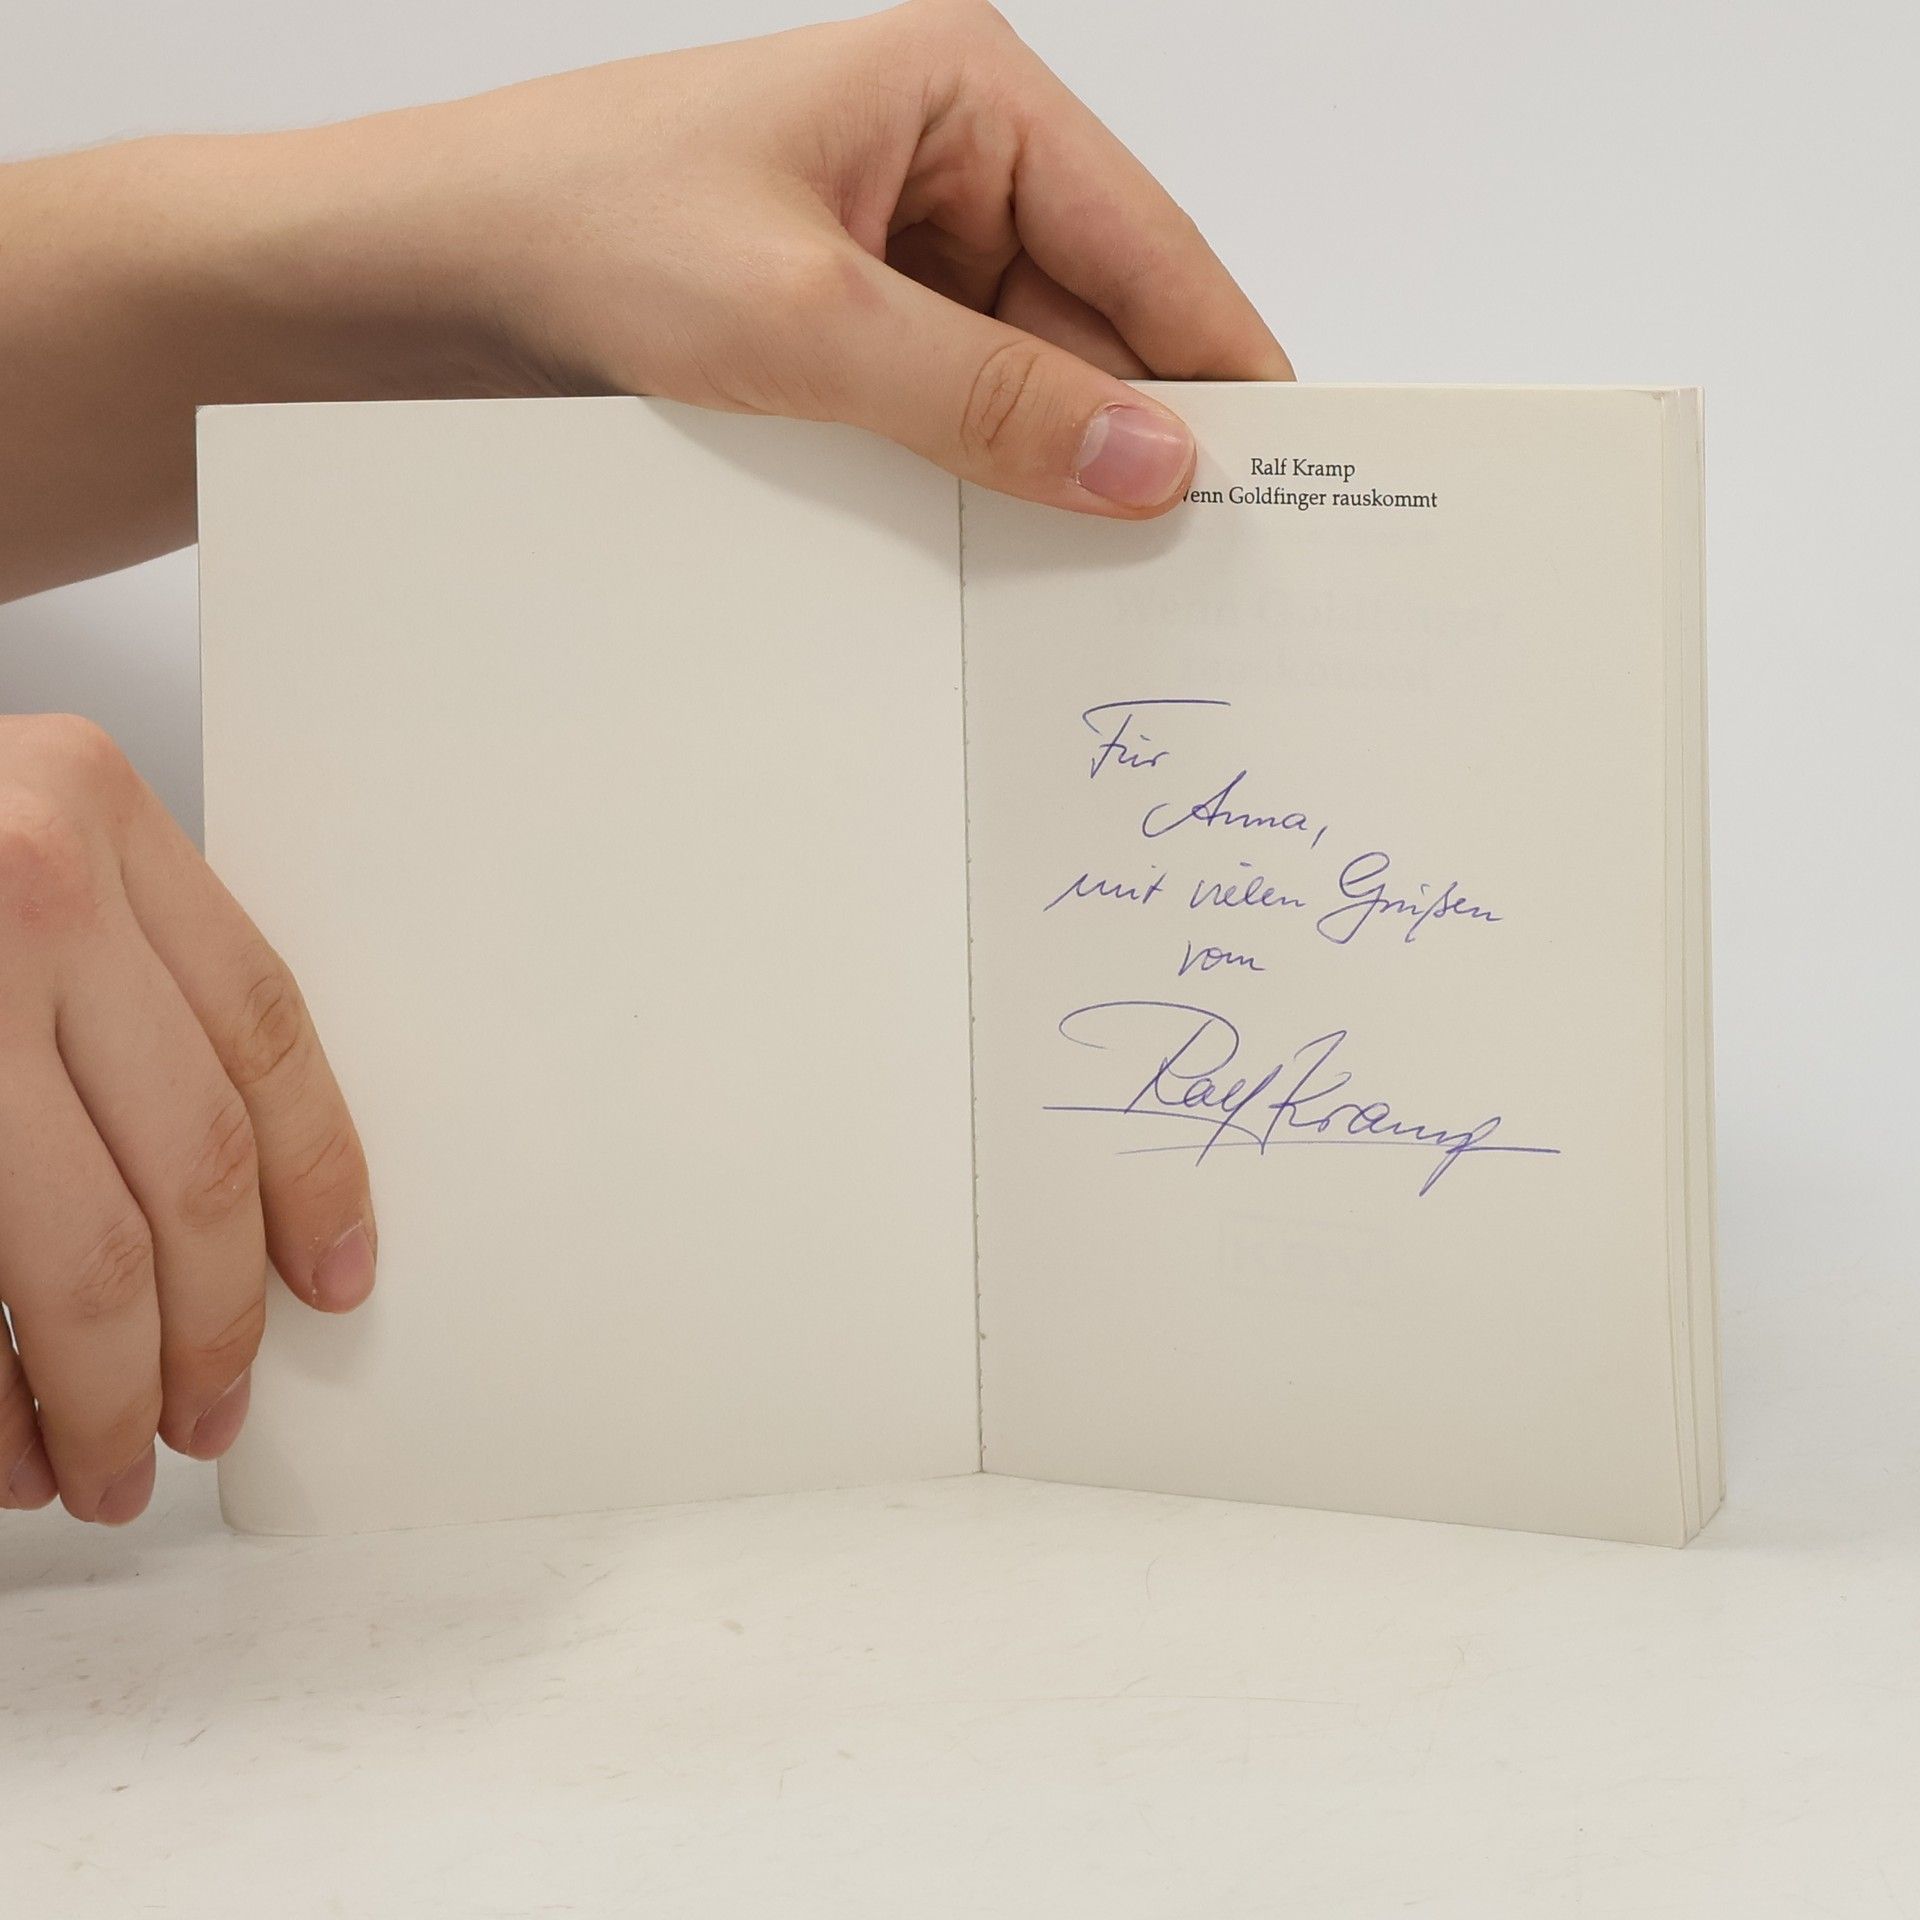 Ralf Kramp
enn Goldfinger rauskommt
Für
Anna,
mit vielen Grüßen
vom
Ralf Kramp